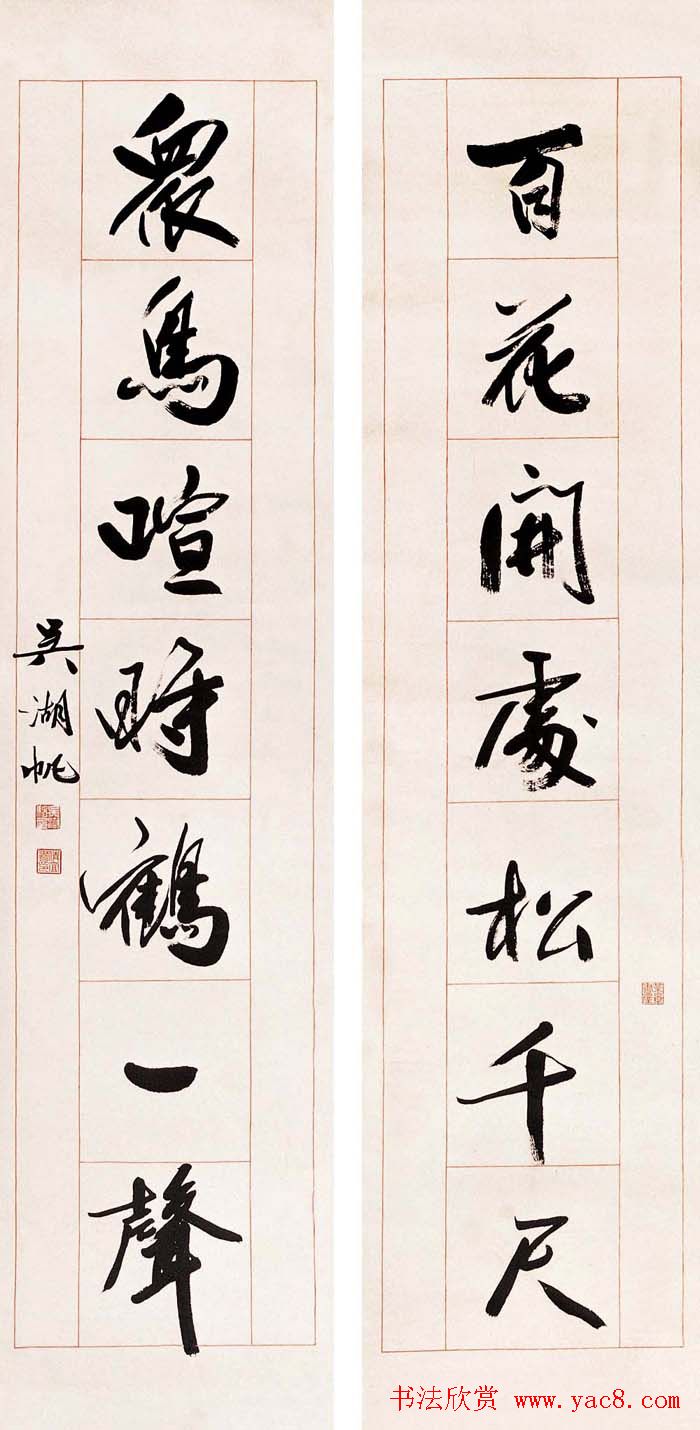 百花開處松千尺
眾鳥喧時鶴一聲
吳湖帆
书法欣赏 www.yac8.com